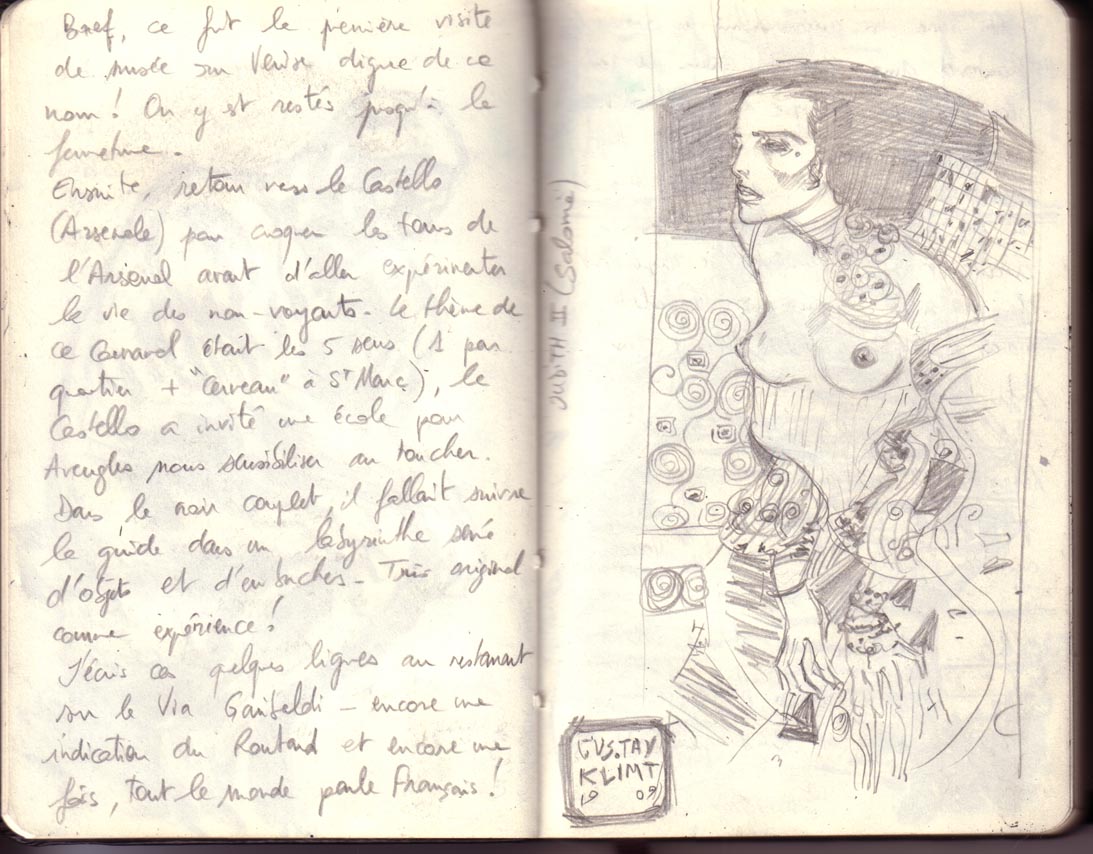 Bref, ce fut la première visite
de musée sur Venise digne de ce
nom! On y est restés jusqu'à la
fermeture.
Ensuite, retour vers le Castello
(Arsenale) pour croquer les tours de
l'Arsenal avant d'aller expérimenter
la vie des non-voyants. Le thème de
ce Carnaval était les 5 sens (1 par
quartier + "Cerveau" à St Marc), le
Castello a invité une école pour
Aveugles nous sensibiliser au toucher.
Dans le noir complet, il fallait suivre
le guide dans un labyrinthe semé
d'objets et d'embuches - Très original
comme expérience!
J'écris ces quelques lignes au restaurant
sur la Via Garibaldi - encore une
indication du Routard et encore une
fois, tout le monde parle Français!
JUDITH II (Salomé)
GUSTAV
KLIMT
19 09